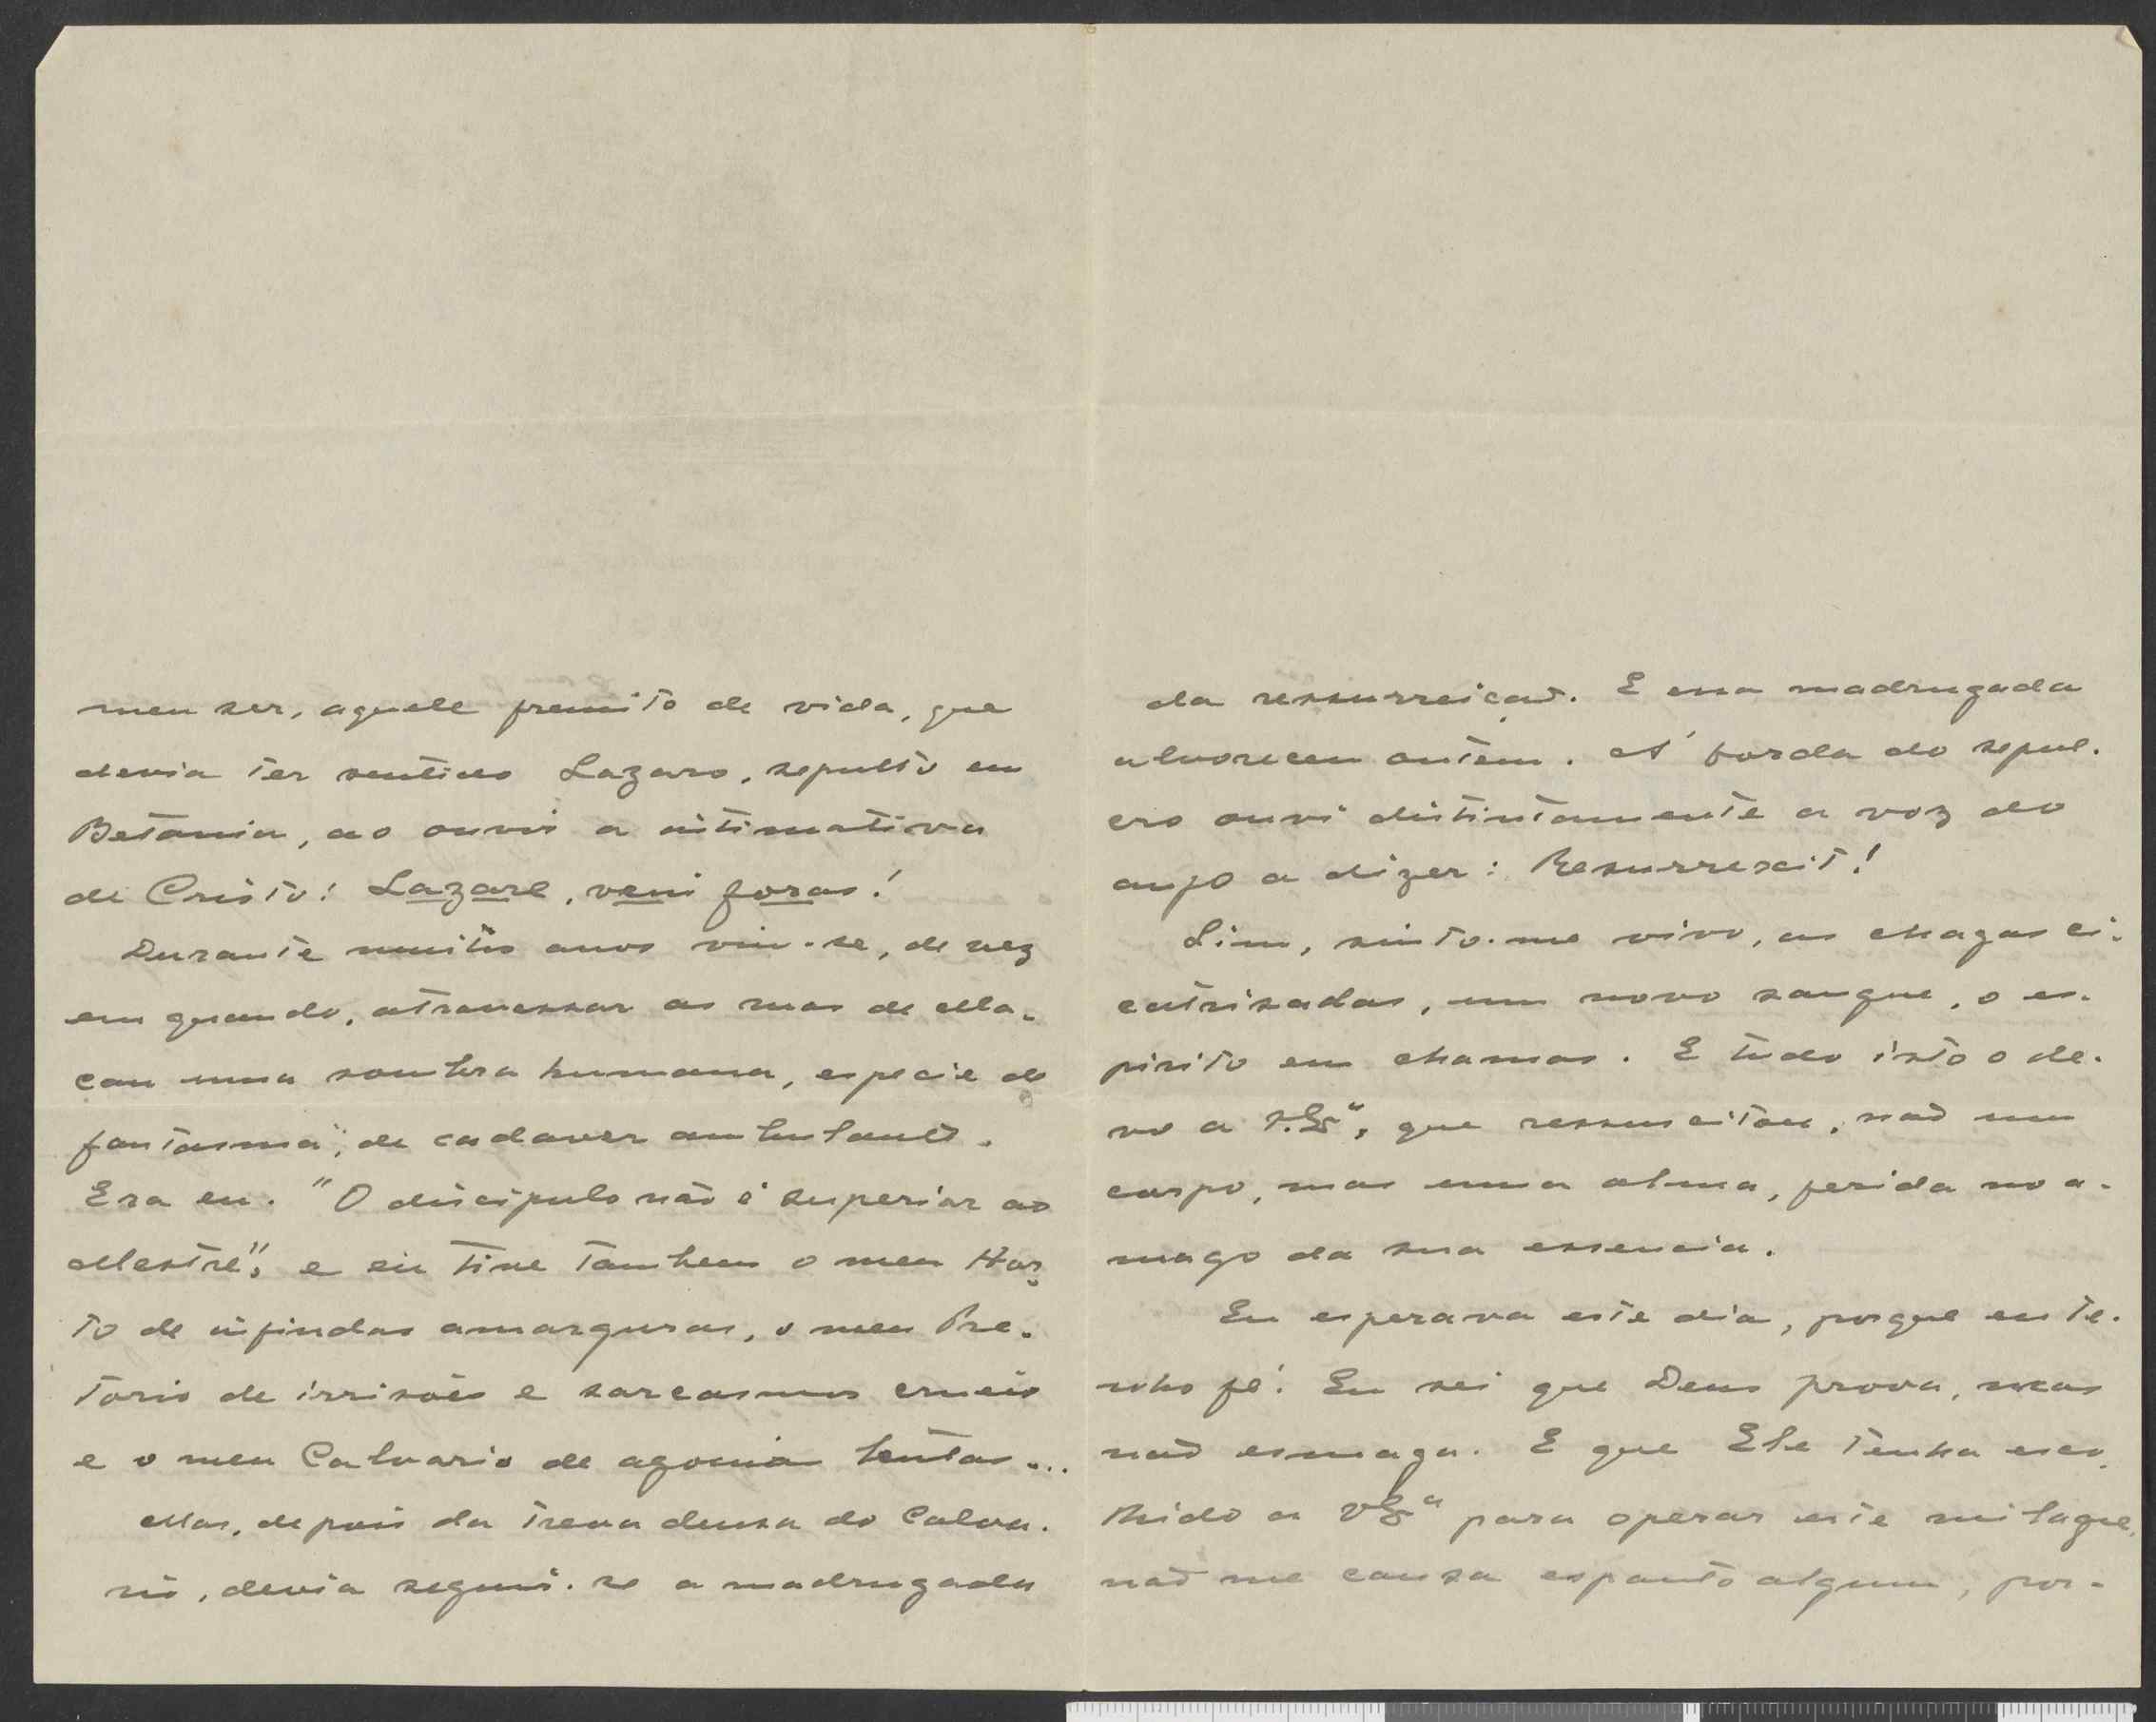 meu ser, aquele fremito de vida, que
devia ter sentido Lazaro, sepulto em
Betania, ao ouvir a intimativa
de Cristo: Lazare, veni foras!
Durante muitos anos viu-se, de vez
em quando, atravessar as ruas de Ma-
cau uma sombra humana, especie de
fantasma, de cadaver ambulante.
Era eu. "O discipulo não é superior ao
Mestre", e eu tive tambem o meu Hor-
to de infindas amarguras, o meu Pre-
torio de irrisões e sarcasmos crueis
e o meu Calvario de agonias lentas...
Mas, depois da treva densa do Calva-
rio, devia seguir-se a madrugada
da ressurreiçaõ. E essa madrugada
alvoreceu ontem. Á borda do sepul-
cro ouvi distintamente a voz do
anjo a dizer: Resurrexit!
Sim, sinto-me vivo, as chagas ci-
catrisadas, um novo sangue, o es-
pirito em chamas. E tudo isto o de-
vo a V. Exª, que ressuscitou, naõ um
corpo, mas uma alma, ferida no a-
mago da sua essencia.
Eu esperava este dia, porque eu te-
nho fé. Eu sei que Deus prova, mas
naõ esmaga. E que Ele tenha esco-
lhido a V Exª para operar este milagre,
naõ me causa espanto algum, por-